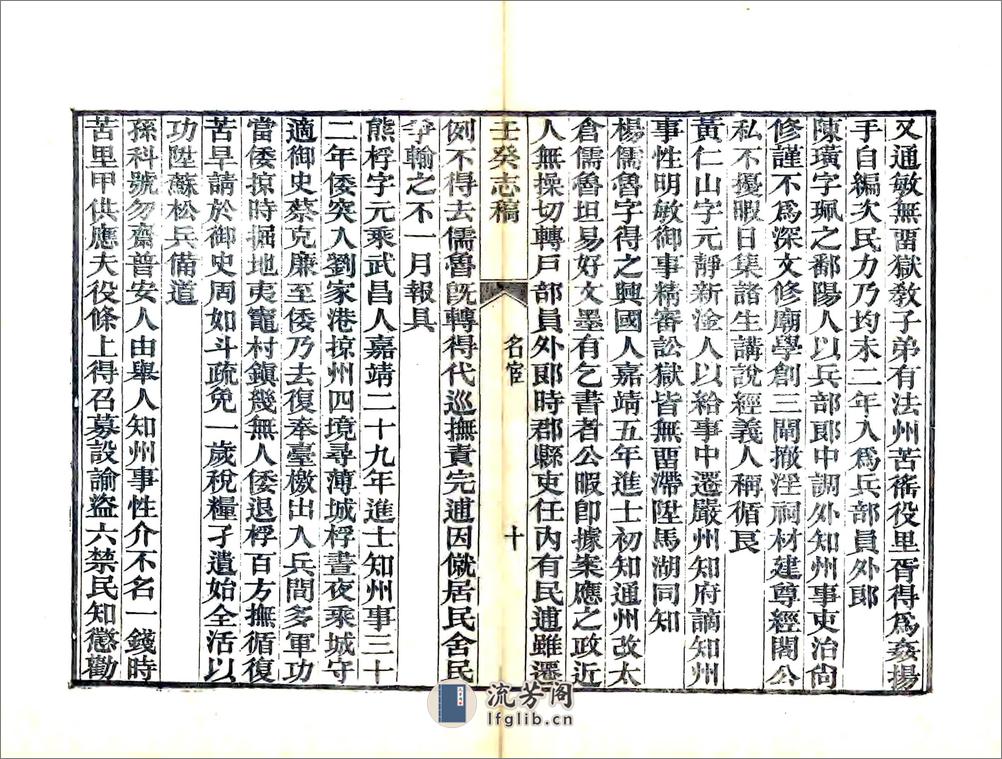 又通敏無畱獄敎子弟有法州苦徭役里胥得爲姦揚
手自編次民力乃均未二年入爲兵部員外郎
陳璜字珮之鄱陽人以兵部郎中調外知州事吏治尙
修謹不爲深文修廟學創三閘撤淫祠材建尊經閣公
私不擾暇日集諸生講說經義人稱循良
黃仁山字元靜新淦人以給事中遷嚴州知府謫知州
事性明敏御事精審訟獄皆無畱滯陞馬湖同知
楊儒魯字得之興國人嘉靖五年進士初知通州改太
倉儒魯坦易好文墨有乞書者公暇卽據案應之政近
人無操切轉戸部員外郎時郡縣吏任內有民逋雖遷
壬癸志稿
名宦
十
例不得去儒魯旣轉得代巡撫責完逋因僦居民舍民
爭輸之不一月報具
熊桴字元乘武昌人嘉靖二十九年進士知州事三十
二年倭突入劉家港掠州四境尋薄城桴晝夜乘城守
適御史蔡克廉至倭乃去復奉臺檄出入兵間多軍功
當倭掠時掘地夷竈村鎭幾無人倭退桴百方撫循復
苦旱請於御史周如斗疏免一歲稅糧孑遺始全活以
功陞蘇松兵備道
孫科號勿齋普安人由舉人知州事性介不名一錢時
苦里甲供應夫役條上得召募設諭盜六禁民知懲勸
流芳阁
lfglib.cn